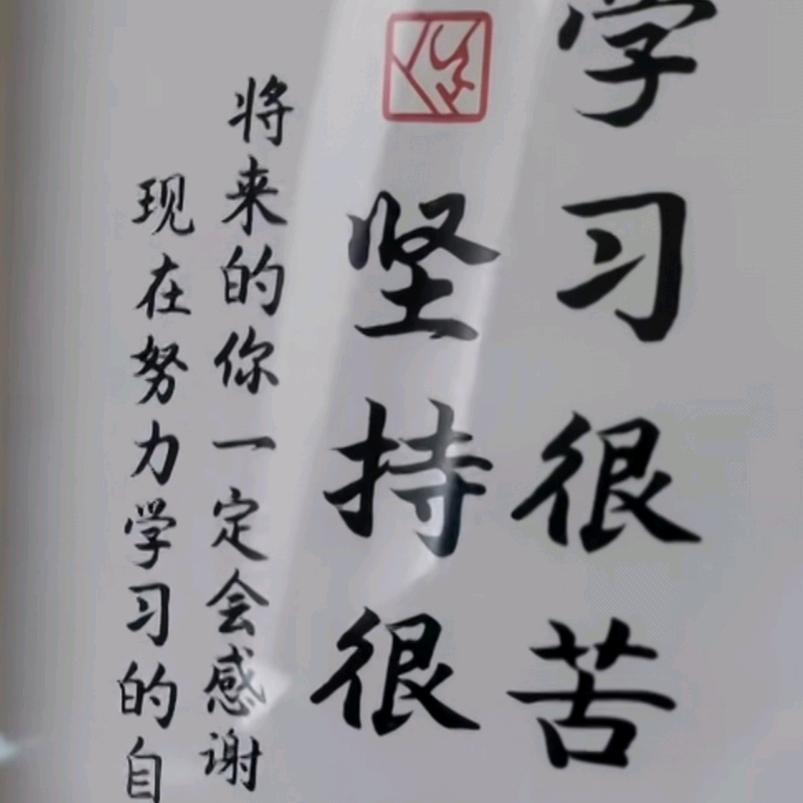 学习很苦
坚持很
将来的你一定会感谢
现在努力学习的自